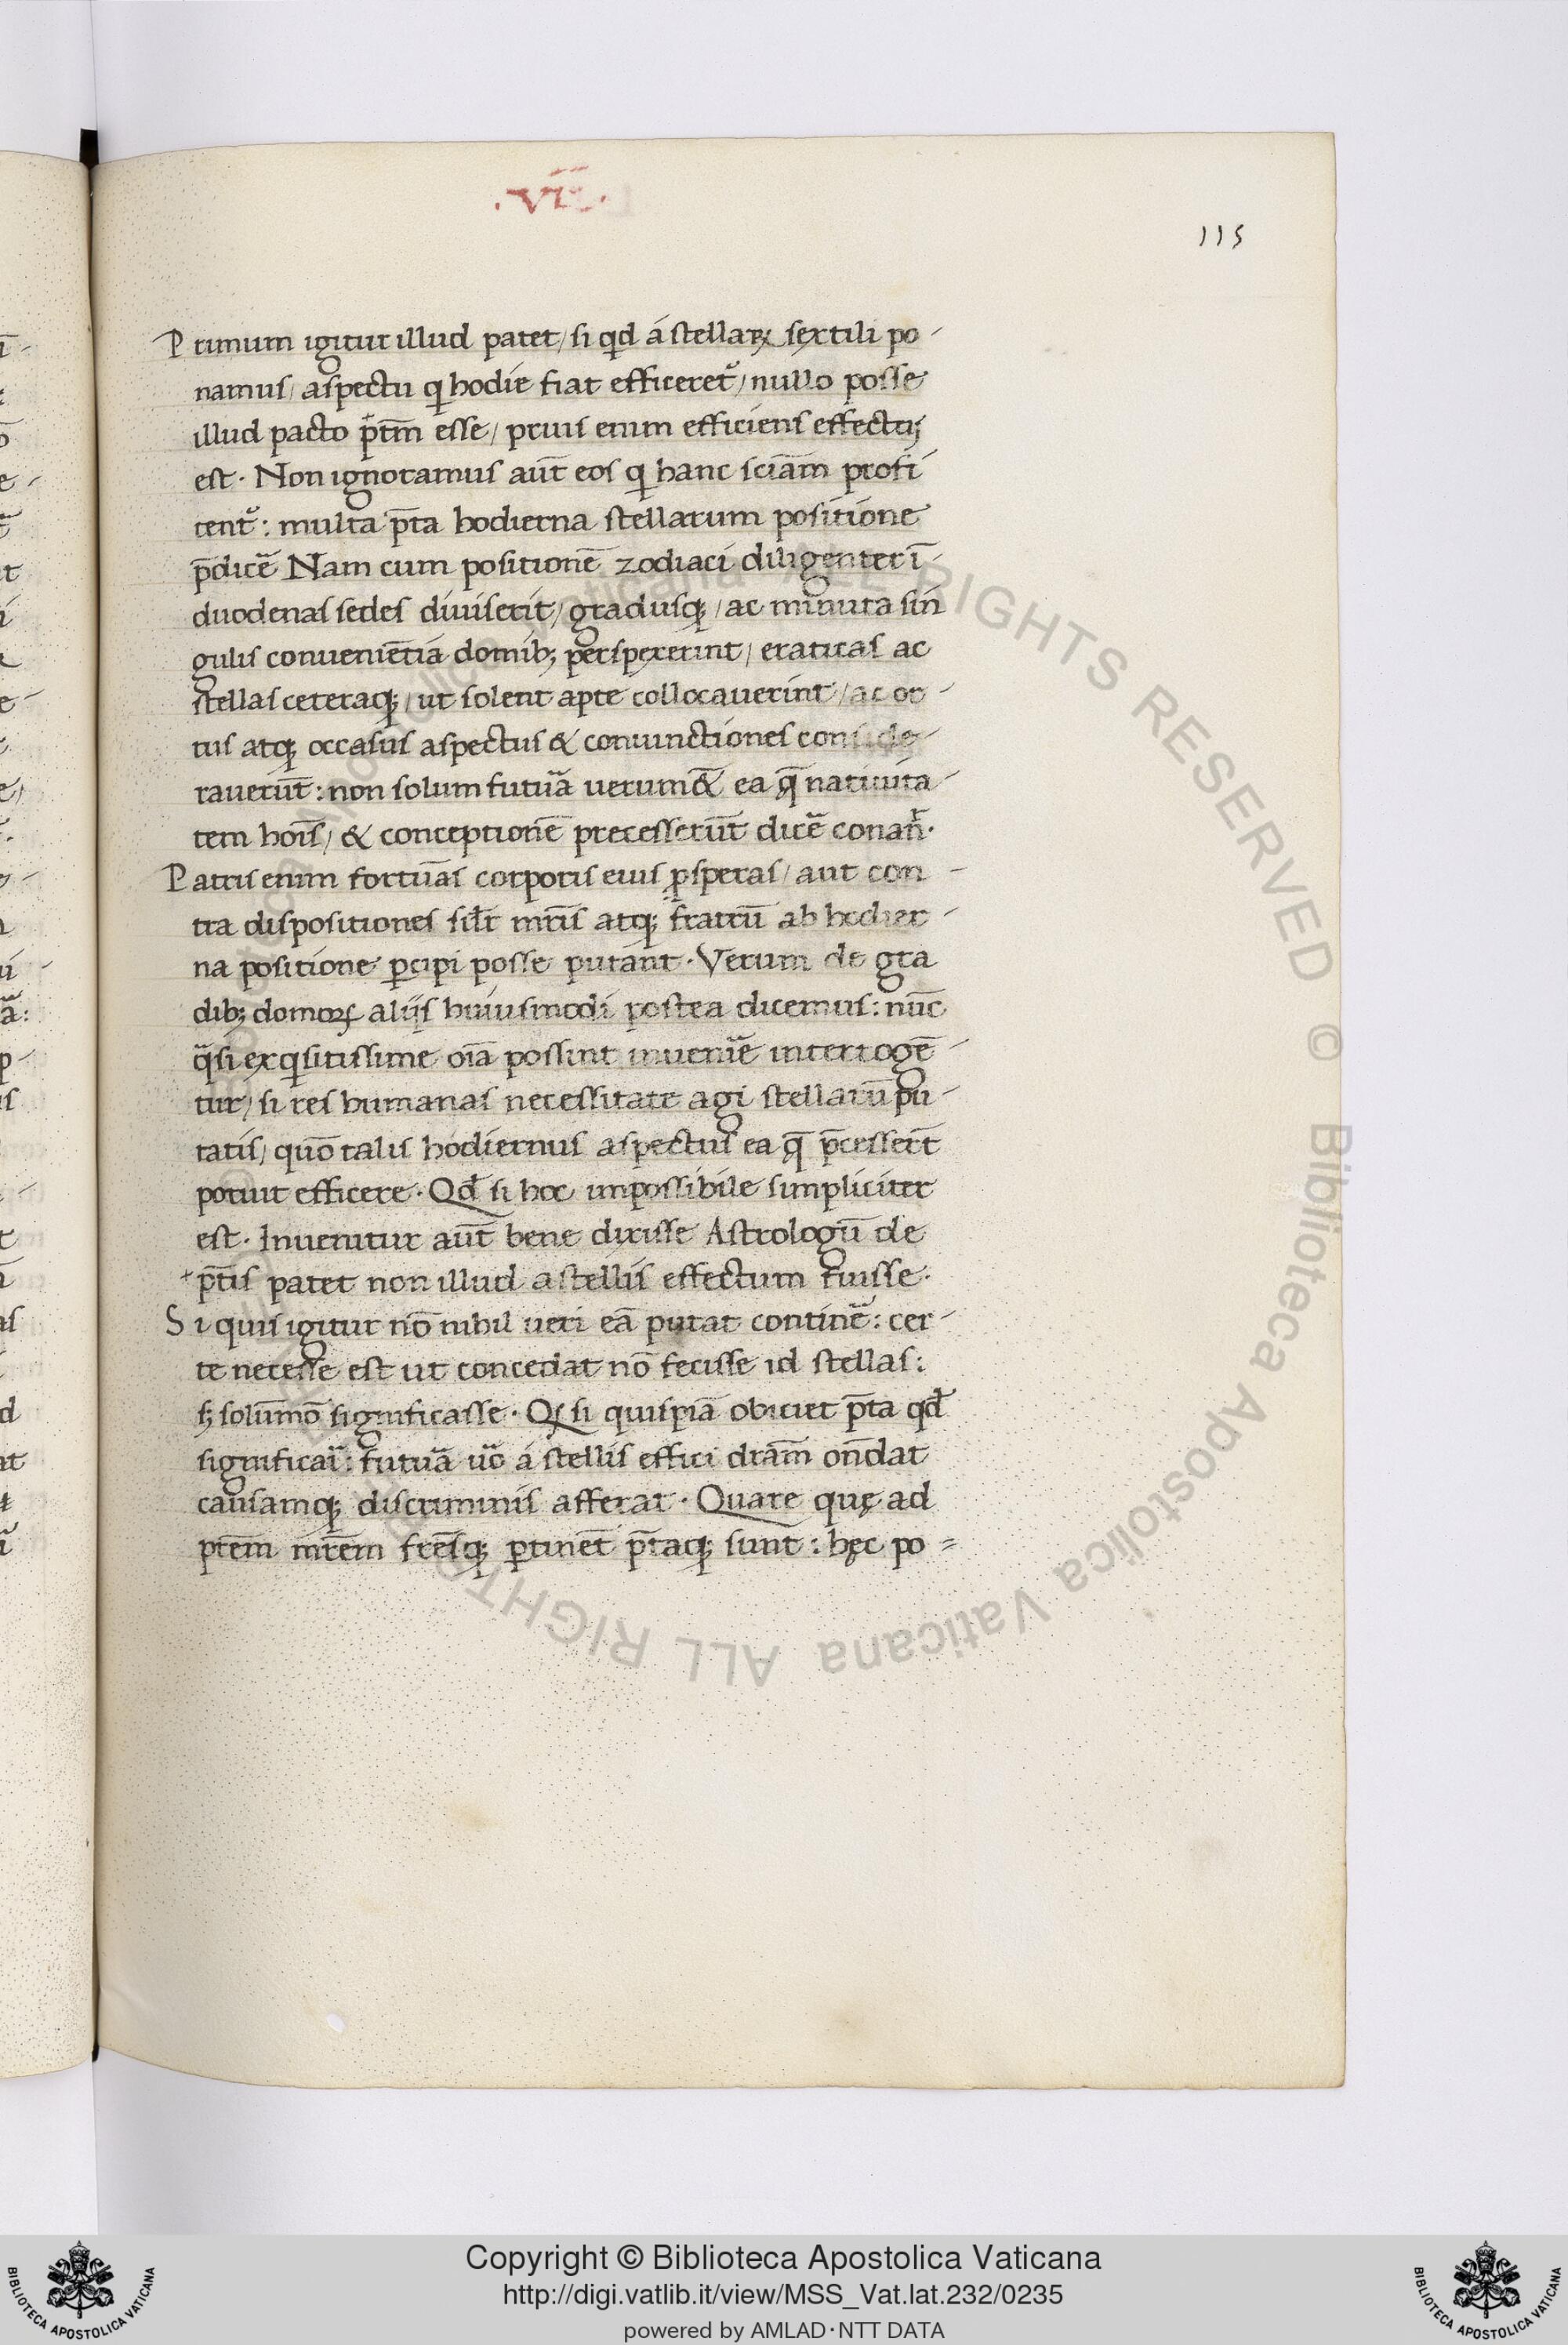 .VI.
115
Primum igitur illud patet/ si qid á stellarꝝ sextili po-
namus/ aspectu qi hodie fiat efficeret᷑/ nullo posse
illud pacto p̄tm̄ esse/ prius enim efficiens effectu;
est. Non ignoramus aūt eos qi hanc sciām profi
tent᷑: multa p̄ta hodierna stellarum positione
p̄dicē Nam cum positionē zodiaci diligenter ī-
duodenas sedes diuiserit/ gradusq;/ ac minuta sin
gulis conueniētiá domib; perspexerint/ eraticas ac
stellas ceteraq;/ ut solent apte collocauerint/ ac or-
tus atq; occasus aspectus & coniunctiones conside-
rauerūt: non solum futuā uerum&̄ ea q̄ natiuita-
tem hoīs/ & conceptionē precesserūt dicē conan̄.
Patris enim fortuās corporis eius ꝓsperas/ aut con-
tra dispositiones sil̄r mr̄is atq; fratrū ab hodier-
na positione ꝑcipi posse putant. Verum de gra
dib; domorꝝ alijs huiusmodi postea dicemus: nūc
q̄si exqisitissime oīa possint inueniē interrogē-
tur/ si res humanas necessitate agi stellarū pu-
tatis/ quō talis hodiernus aspectus ea q̄ p̄cessert̄
potuit efficere. Qd̄ si hoc impossibile simpliciter
est. Inuenitur aūt bene dixisse Astrologū de
p̄tis patet non illud a stellis effectum fuisse.
Si quis igitur nō nihil ueri eā putat continē: cer-
te necesse est ut concedat nō fecisse id stellas:
s; solūmō significasse. Qꝫ si quispiā obiciet p̄ta qd̄
significari: futuā uō á stellis effici dr̄am on̄dat
causamq; discriminis afferat. Quare quę ad
pr̄em mr̄em fr̄esq; ꝑtinēt p̄taq; sunt: hęc po=
Copyright © Biblioteca Apostolica Vaticana
http://digi.vatlib.it/view/MSS_Vat.lat.232/0235
powered by AMLAD·NTT DATA
BIBLIOTECA APOSTOLICA VATICANA
BIBLIOTECA APOSTOLICA VATICANA
© Biblioteca Apostolica Vaticana ALL RIGHTS RESERVED